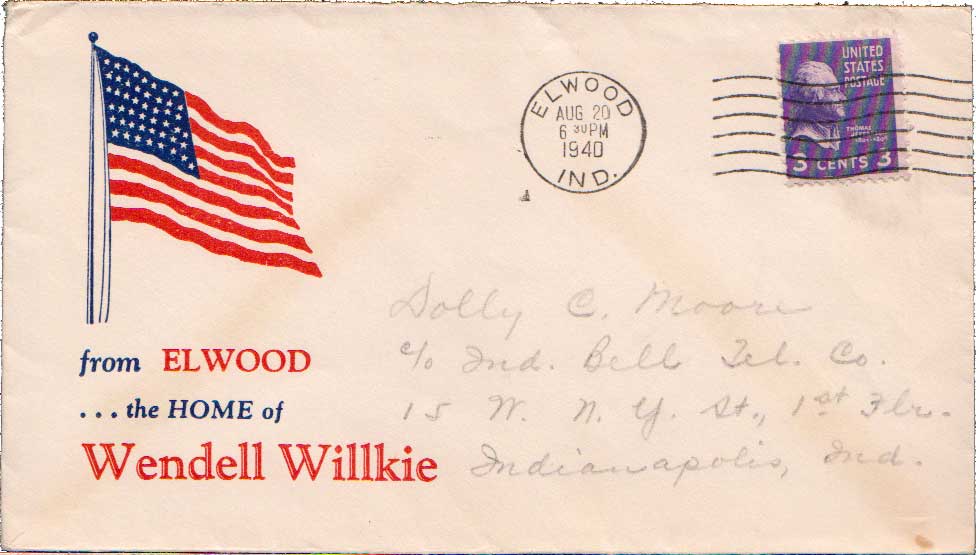 ELWOOD
AUG 20
6 30 PM
1940
IND.
UNITED
STATES
POSTAGE
THOMAS
3 CENTS 3
from ELWOOD
... the HOME of
Wendell Willkie
Dolly C. Moore
c/o Ind. Bell Tel. Co.
15 W. N. Y. St., 1st Flr.
Indianapolis, Ind.